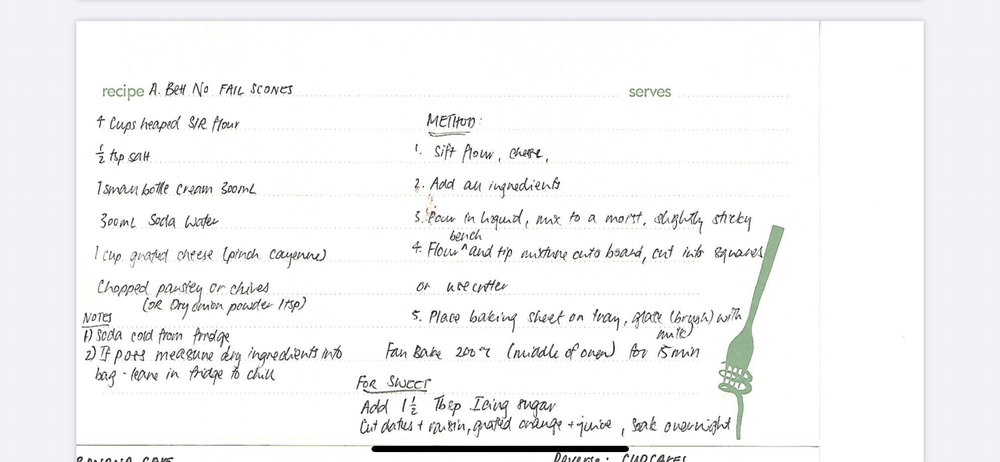 recipe A. Bell No FAIL SCONES
serves
4 Cups heaped S/R flour
1/2 tsp salt
1 small bottle cream 300mL
300mL Soda Water
1 cup grated cheese (pinch cayenne)
Chopped parsley or chives
(OR Dry onion powder 1tsp)
NOTES
1) Soda cold from fridge
2) If poss measure dry ingredients into
bag - leave in fridge to chill
METHOD:
1. Sift flour, cheese,
2. Add all ingredients
3. Pour in liquid, mix to a moist, slightly sticky
4. Flour ^ bench and tip mixture onto board, cut into squares
or use cutter
5. Place baking sheet on tray, glaze (brush) with
milk)
Fan Bake 200°c (middle of oven) for 15 min
FOR SWEET
Add 1 1/2 Tbsp Icing sugar
Cut dates + raisin, grated orange + juice, soak overnight
BANANA CAKE
Reverse: CUPCAKES